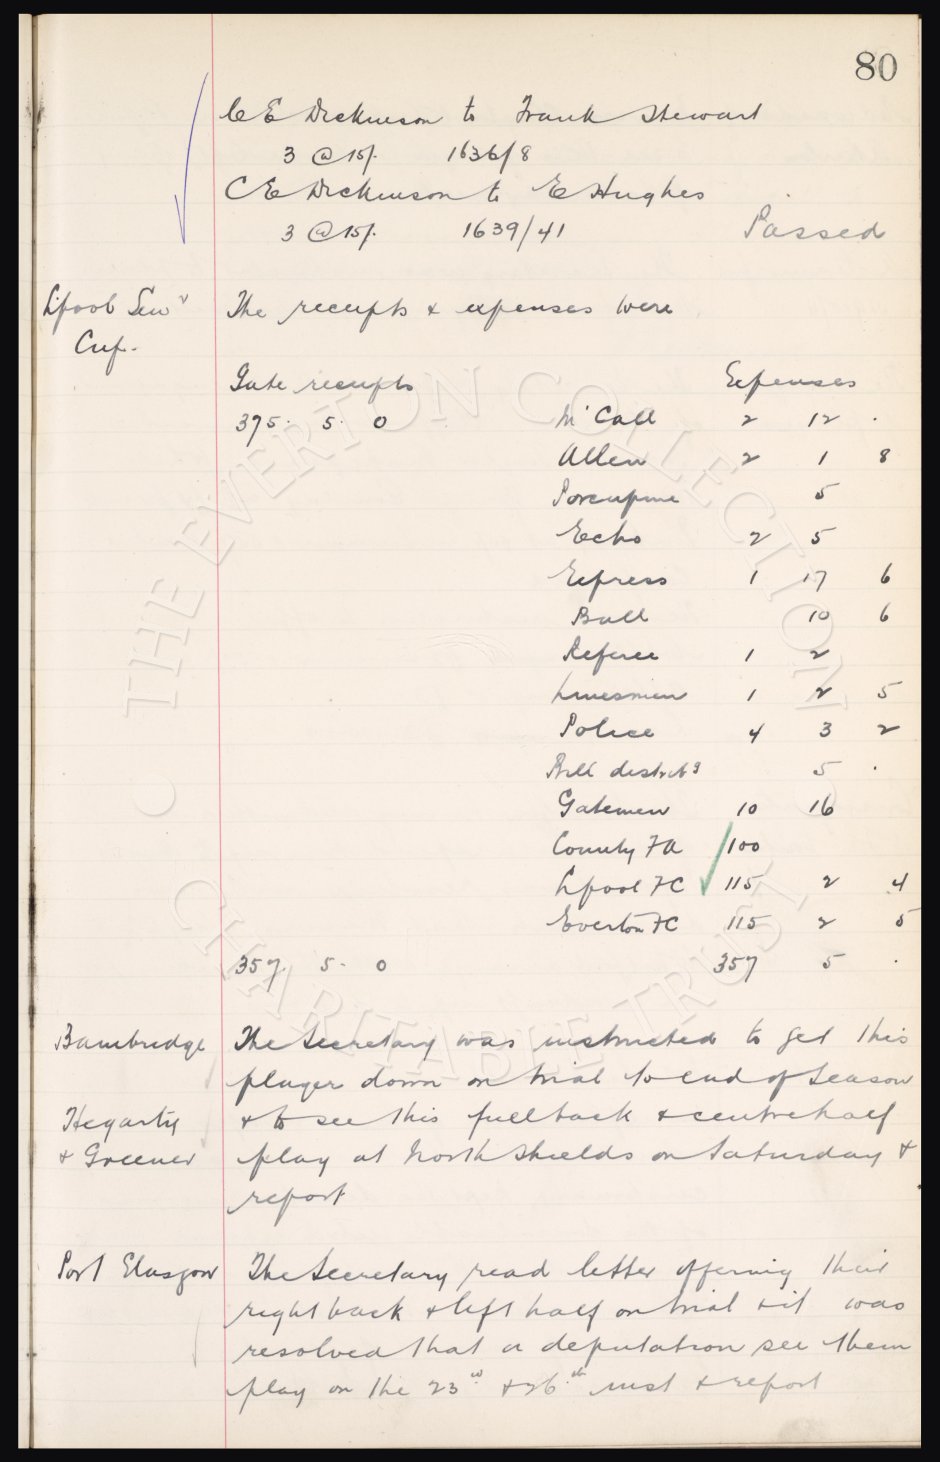 80
C E Dickinson to Frank Stewart
3 @ 15/. 1636/8
C E Dickinson to E Hughes
3 @ 15/. 1639/41 Passed
L'pool Senr The receipts & expenses were
Cup.
Gate receipts Expenses
375. 5. 0 McCall 2 12 .
Allen 2 1 8
Porcupine 5
Echo 2 5
Express 1 17 6
Ball 10 6
Referee 1 2
Linesmen 1 2 5
Police 4 3 2
Bill distrib 5 .
Gatemen 10 16
County FA 100
L'pool FC 115 2 4
Everton FC 115 2 5
357. 5. 0 357 5 .
Bambridge The Secretary was instructed to get this
player down on trial to end of Season
Hegarty & to see this full back & centre half
& Greener play at North Shields on Saturday &
report
Port Glasgow The Secretary read letter offering their
right back & left half on trial & it was
resolved that a deputation see them
play on the 23rd & 26th inst & report
THE EVERTON COLLECTION
CHARITABLE TRUST